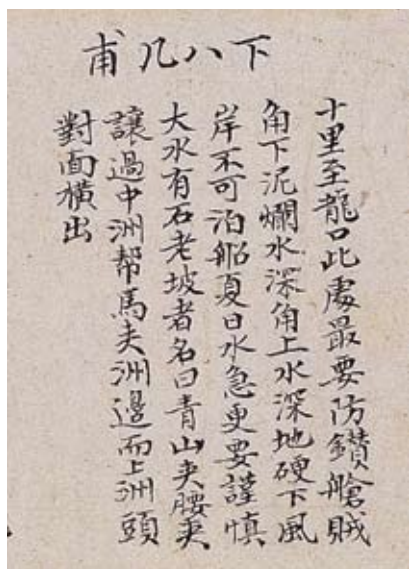 下八几甫
十里至龍口此處最要防鑽艙賊
角下泥爛水深角上水深地硬下風
岸不可泊船夏日水急更要謹慎
大水有石老坡者名曰青山夾腰夾
讓過中洲帮馬夾洲邊而上洲頭
對面橫出